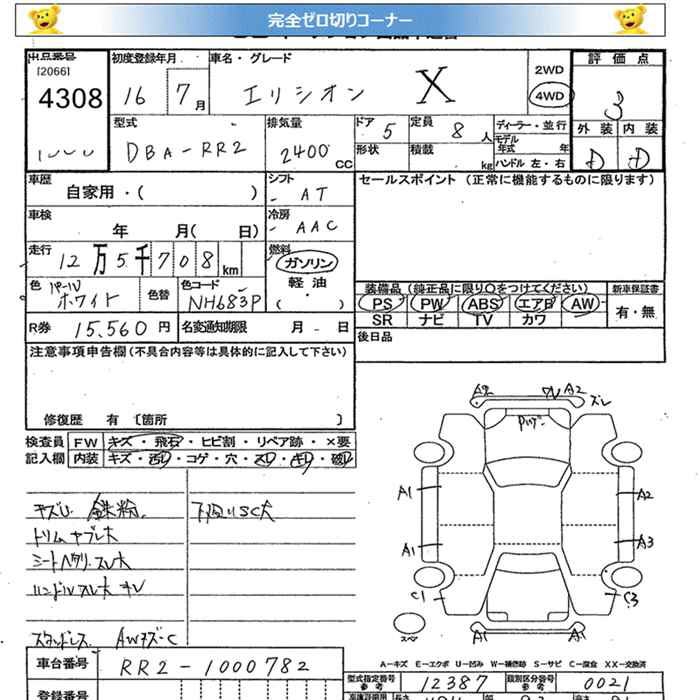 完全ゼロ切りコーナー
出品番号 初度登録年月 車名・グレード 評価点
[2066]
4308 16 7月 エリシオン X 2WD 4WD 3
型式 排気量 ドア 5 定員 8人 ディーラー・並行 外装 内装
DBA-RR2 2400cc 形状 積載 kg モデル年式 年 ハンドル 左・右 D D
車歴 シフト セールスポイント (正常に機能するものに限ります)
自家用・( ) AT
車検 冷房
年 月( 日) AAC
走行 燃料
12万5千708km ガソリン
色 パール 色替 色コード 軽油 装備品(純正品に限り○をつけてください) 新車保証書
ホワイト NH683P ( ・ ) PS PW ABS エアB AW 有・無
SR ナビ TV カワ
R券 15,560円 名変通知期限 月 - 日 後日品
注意事項申告欄(不具合内容等は具体的に記入して下さい)
修復歴 有 〔箇所 〕
検査員 FW キズ・飛石・ヒビ割・リペア跡・×要
記入欄 内装 キズ・汚れ・コゲ・穴・スレ・キレ・破レ
A2 A2 ズレ
A1 A2
A1 A3
C1 C3
A1 A1
キズU 鉄粉 下廻りSC大
トリムヤブレ大
シートヘタリ・スレ大
ハンドルスレ大
スタッドレス AWキズ・C
A−キズ E−エクボ U−凹み W−補修跡 S−サビ C−腐食 XX−交換済
車台番号 RR2-1000782 型式指定番号 参考 12387 類別区分番号 参考 0021
登録番号 長さ